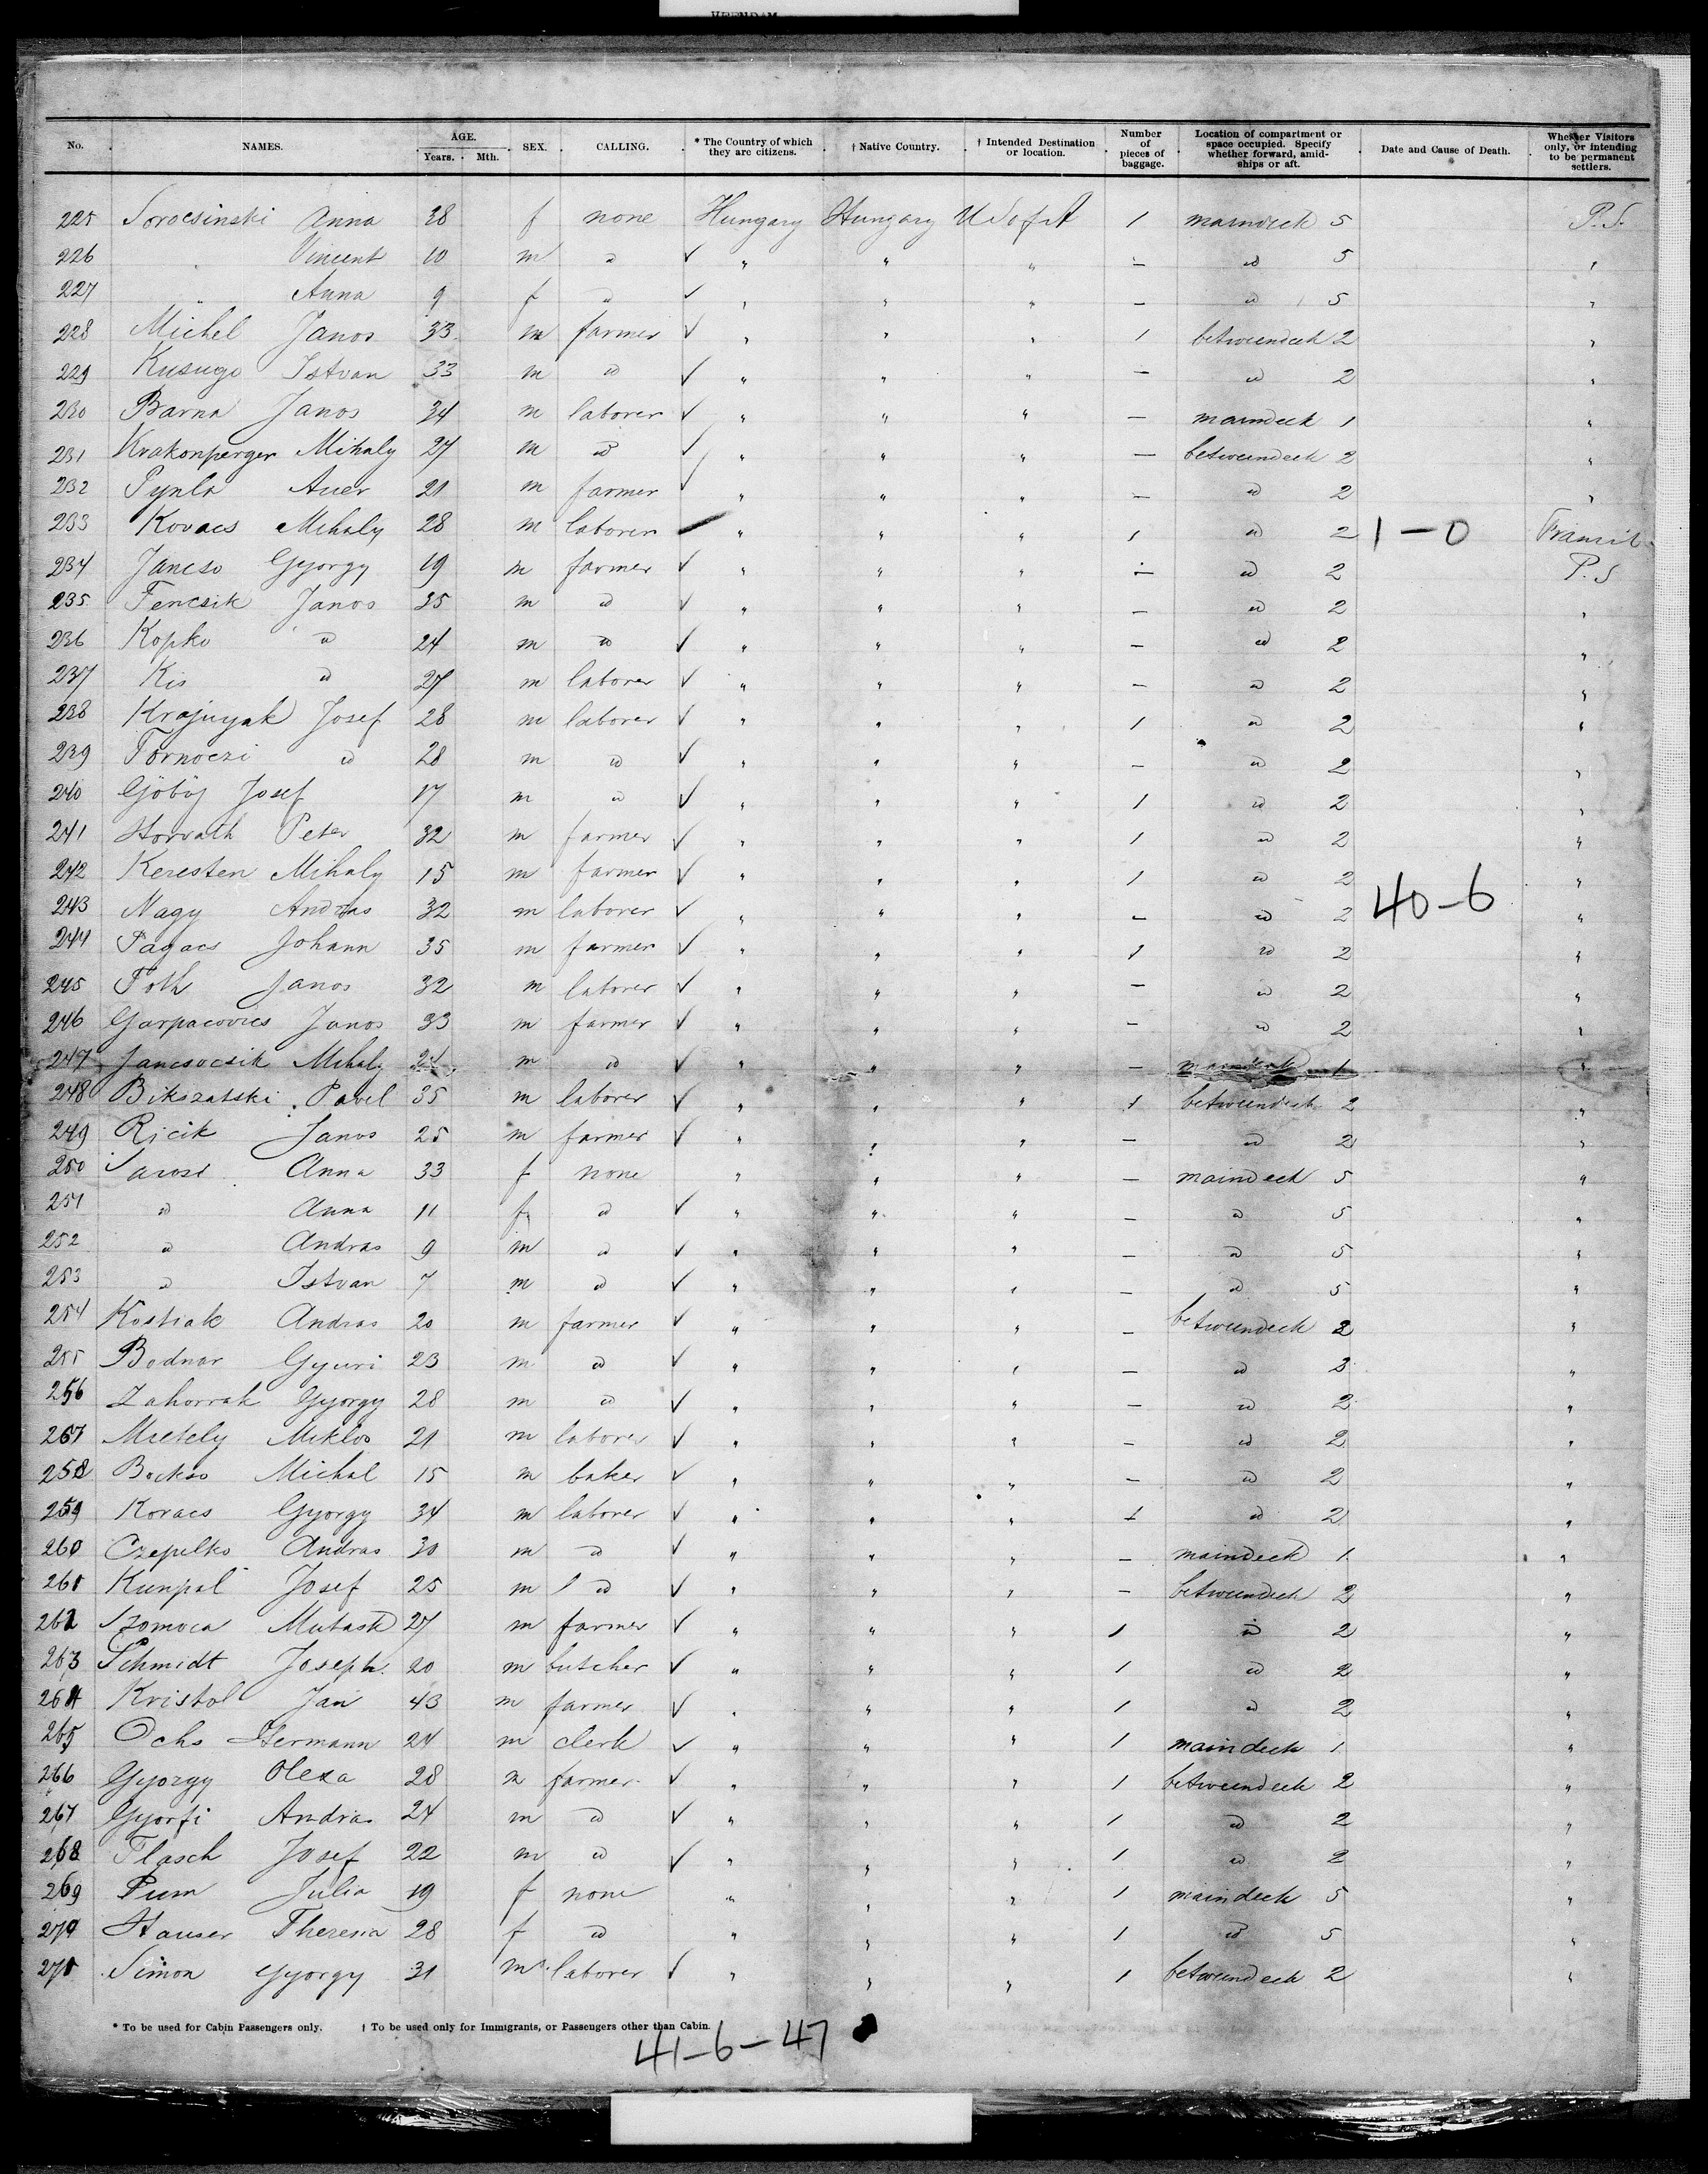 VEENDAM
No. NAMES. AGE. Years. Mth. SEX. CALLING. * The Country of which they are citizens. † Native Country. † Intended Destination or location. Number of pieces of baggage. Location of compartment or space occupied. Specify whether forward, amidships or aft. Date and Cause of Death. Whether Visitors only, or intending to be permanent settlers.
225 Sorocsinski Anna 38 f none Hungary Hungary U S of A 1 maindeck 5 P.S.
226 " Vincent 10 m id ✓ " " " — id 5 "
227 " Anna 9 f id ✓ " " " — id 5 "
228 Michel Janos 33 m farmer ✓ " " " 1 betweendeck 2 "
229 Kusugo Istvan 33 m id ✓ " " " — id 2 "
230 Barna Janos 34 m laborer ✓ " " " — maindeck 1 "
231 Krakonperger Mihaly 27 m id ✓ " " " — betweendeck 2 "
232 Pynla Auer 21 m farmer ✓ " " " — id 2 "
233 Kovacs Mihaly 28 m laborer " " " 1 id 2 1-0 Transit
234 Jancso Gyorgy 19 m farmer ✓ " " " — id 2 P.S
235 Fencsik Janos 35 m id ✓ " " " — id 2 "
236 Kopko id 24 m id ✓ " " " — id 2 "
237 Kis id 27 m laborer ✓ " " " — id 2 "
238 Krajnyak Josef 28 m laborer ✓ " " " 1 id 2 "
239 Tornoczi id 28 m id ✓ " " " — id 2 "
240 Göböj Josef 17 m id ✓ " " " 1 id 2 "
241 Horvath Peter 32 m farmer ✓ " " " 1 id 2 "
242 Keresten Mihaly 15 m farmer ✓ " " " 1 id 2 "
243 Nagy Andras 32 m laborer ✓ " " " — id 2 40-6 "
244 Pagacs Johann 35 m farmer ✓ " " " 1 id 2 "
245 Toth Janos 32 m laborer ✓ " " " — id 2 "
246 Garpacovics Janos 33 m farmer ✓ " " " — id 2 "
247 Jancsocsik Mihaly 24 m id ✓ " " " — maindeck 1 "
248 Bikszatski Pavel 35 m laborer ✓ " " " 1 betweendeck 2 "
249 Ricik Janos 25 m farmer ✓ " " " — id 2 "
250 Sarosi Anna 33 f none " " " — maindeck 5 "
251 id Anna 11 f id ✓ " " " — id 5 "
252 id Andras 9 m id ✓ " " " — id 5 "
253 id Istvan 7 m id ✓ " " " — id 5 "
254 Kostiak Andras 20 m farmer ✓ " " " — betweendeck 2 "
255 Bodnar Gyuri 23 m id ✓ " " " — id 3 "
256 Zahorrak Gyorgy 28 m id ✓ " " " — id 2 "
257 Mietely Miklos 21 m laborer ✓ " " " — id 2 "
258 Bockso Michal 15 m baker ✓ " " " — id 2 "
259 Kovacs Gyorgy 34 m laborer ✓ " " " 1 id 2 "
260 Czepelko Andras 30 m id ✓ " " " — maindeck 1 "
261 Kunpal Josef 25 m id ✓ " " " — betweendeck 2 "
262 Szomoca Mutash 27 m farmer ✓ " " " 1 id 2 "
263 Schmidt Joseph. 20 m butcher ✓ " " " 1 id 2 "
264 Kristol Jan 43 m farmer ✓ " " " 1 id 2 "
265 Ochs Hermann 24 m clerk ✓ " " " 1 maindeck 1 "
266 Gyorgy Olexa 28 m farmer ✓ " " " 1 betweendeck 2 "
267 Gyorfi Andras 24 m id ✓ " " " 1 id 2 "
268 Flasch Josef 22 m id ✓ " " " 1 id 2 "
269 Pum Julia 19 f none " " " 1 maindeck 5 "
270 Hauser Theresia 28 f id " " " 1 id 5 "
271 Simon Gyorgy 31 m laborer ✓ " " " 1 betweendeck 2 "
* To be used for Cabin Passengers only. † To be used only for Immigrants, or Passengers other than Cabin.
41-6-47